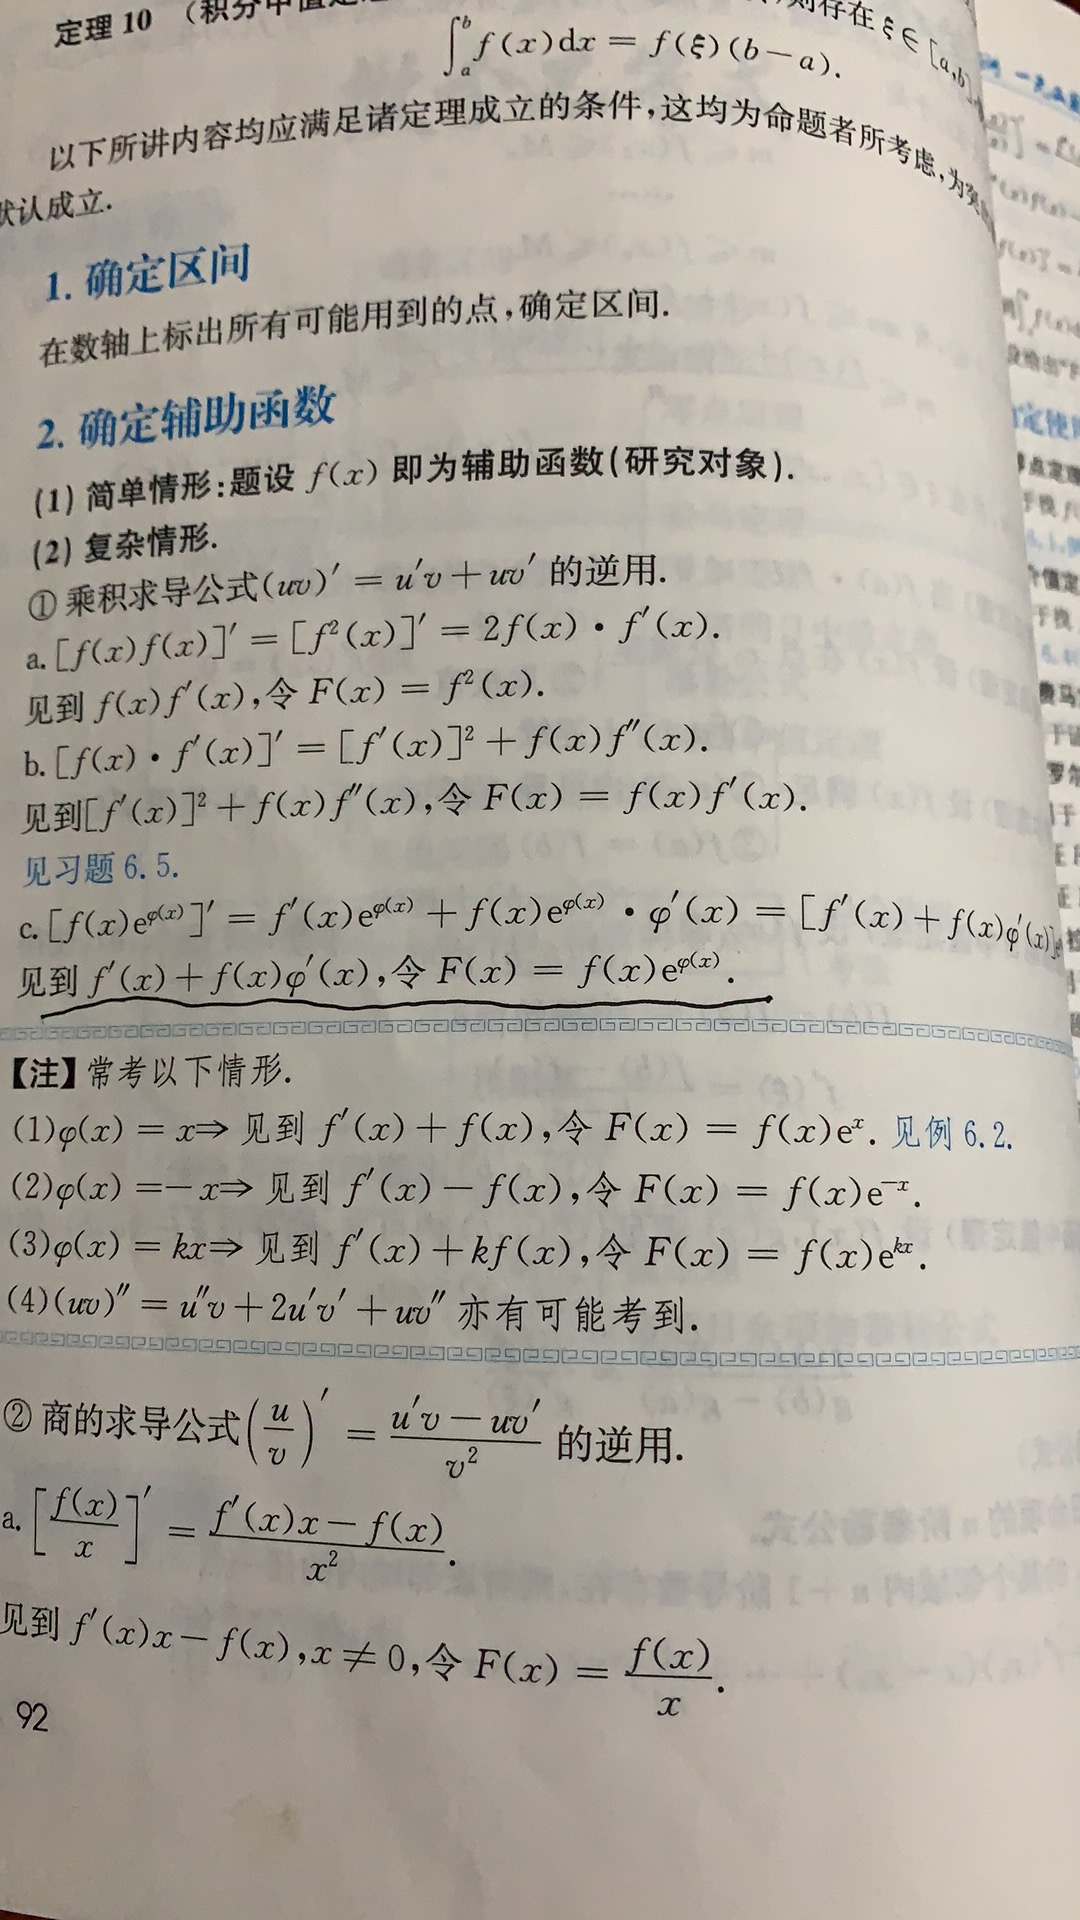 定理 10 (积分中值定理
则存在 ξ ∈ [a,b],
∫ₐᵇ f(x)dx = f(ξ)(b－a).
以下所讲内容均应满足诸定理成立的条件,这均为命题者所考虑,为
默认成立.
1. 确定区间
在数轴上标出所有可能用到的点,确定区间.
2. 确定辅助函数
(1) 简单情形:题设 f(x) 即为辅助函数(研究对象).
(2) 复杂情形.
① 乘积求导公式(uv)′ = u′v＋uv′ 的逆用.
a. [f(x)f(x)]′ = [f²(x)]′ = 2f(x)·f′(x).
见到 f(x)f′(x),令 F(x) = f²(x).
b. [f(x)·f′(x)]′ = [f′(x)]²＋f(x)f″(x).
见到[f′(x)]²＋f(x)f″(x),令 F(x) = f(x)f′(x).
见习题 6.5.
c. [f(x)e^{φ(x)}]′ = f′(x)e^{φ(x)}＋f(x)e^{φ(x)}·φ′(x) = [f′(x)＋f(x)φ′(x)]e
见到 f′(x)＋f(x)φ′(x),令 F(x) = f(x)e^{φ(x)}.
【注】常考以下情形.
(1)φ(x) = x⇒ 见到 f′(x)＋f(x),令 F(x) = f(x)eˣ. 见例 6.2.
(2)φ(x) =－x⇒ 见到 f′(x)－f(x),令 F(x) = f(x)e⁻ˣ.
(3)φ(x) = kx⇒ 见到 f′(x)＋kf(x),令 F(x) = f(x)e^{kx}.
(4)(uv)″ = u″v＋2u′v′＋uv″ 亦有可能考到.
② 商的求导公式(u/v)′ = (u′v－uv′)/v² 的逆用.
a. [f(x)/x]′ = (f′(x)x－f(x))/x².
见到 f′(x)x－f(x),x ≠ 0,令 F(x) = f(x)/x.
92